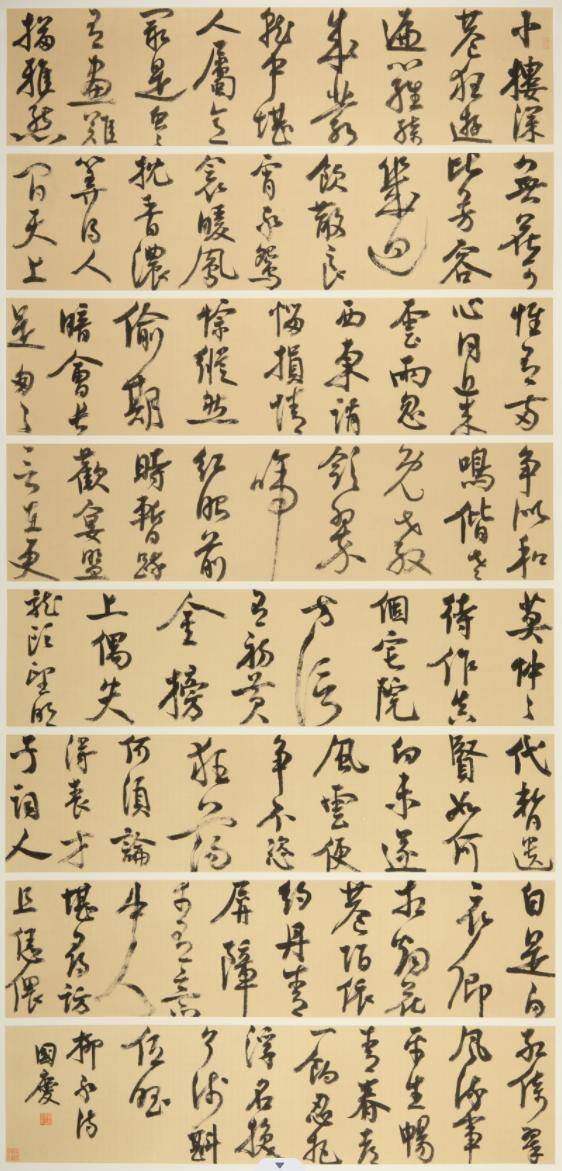 小樓深
巷狂遊
遍羅綺
成叢
就中堪
人屬意
最是虫々
有畫難
描雅態
無花可
比芳容
幾回
飲散良
宵永鴛
衾暖鳳
枕香濃
算得人
間天上
惟有兩
心同近來
雲雨忽
西東誚
惱損情
悰縱然
偷期
暗會長
是匆々
爭似和
鳴偕老
免教
斂翠
啼
紅眼前
時暫疏
歡宴盟
言在更
莫忡々
待作真
個宅院
方信
有初黄
金榜
上偶失
龍頭望明
代暫遺
賢如何
向未遂
風雲便
爭不恣
狂蕩
何須論
得喪才
子詞人
自是白
衣卿
相烟花
巷陌依
約丹青
屏障
幸有意
中人
堪尋訪
且恁偎
紅倚翠
風流事
平生暢
青春都
一餉忍把
浮名換
了淺斟
低唱
柳永詩
國慶